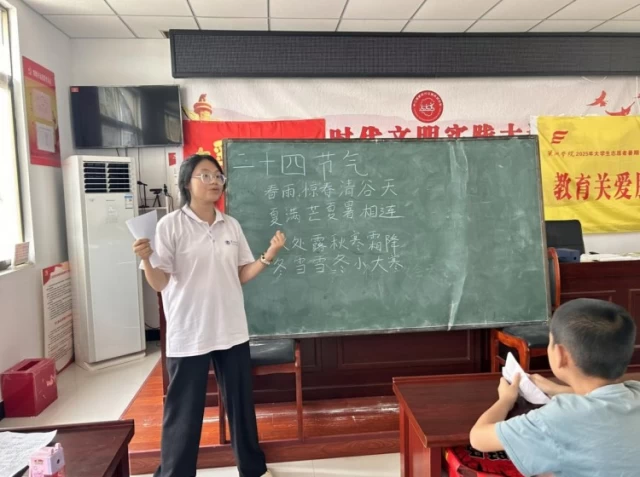 时代文明实践大
二十四节气
春雨,惊春清谷天
夏满芒夏暑相连
处露秋寒霜降
冬当雪冬小大寒
2025年大学生志愿者暑期
教育关爱